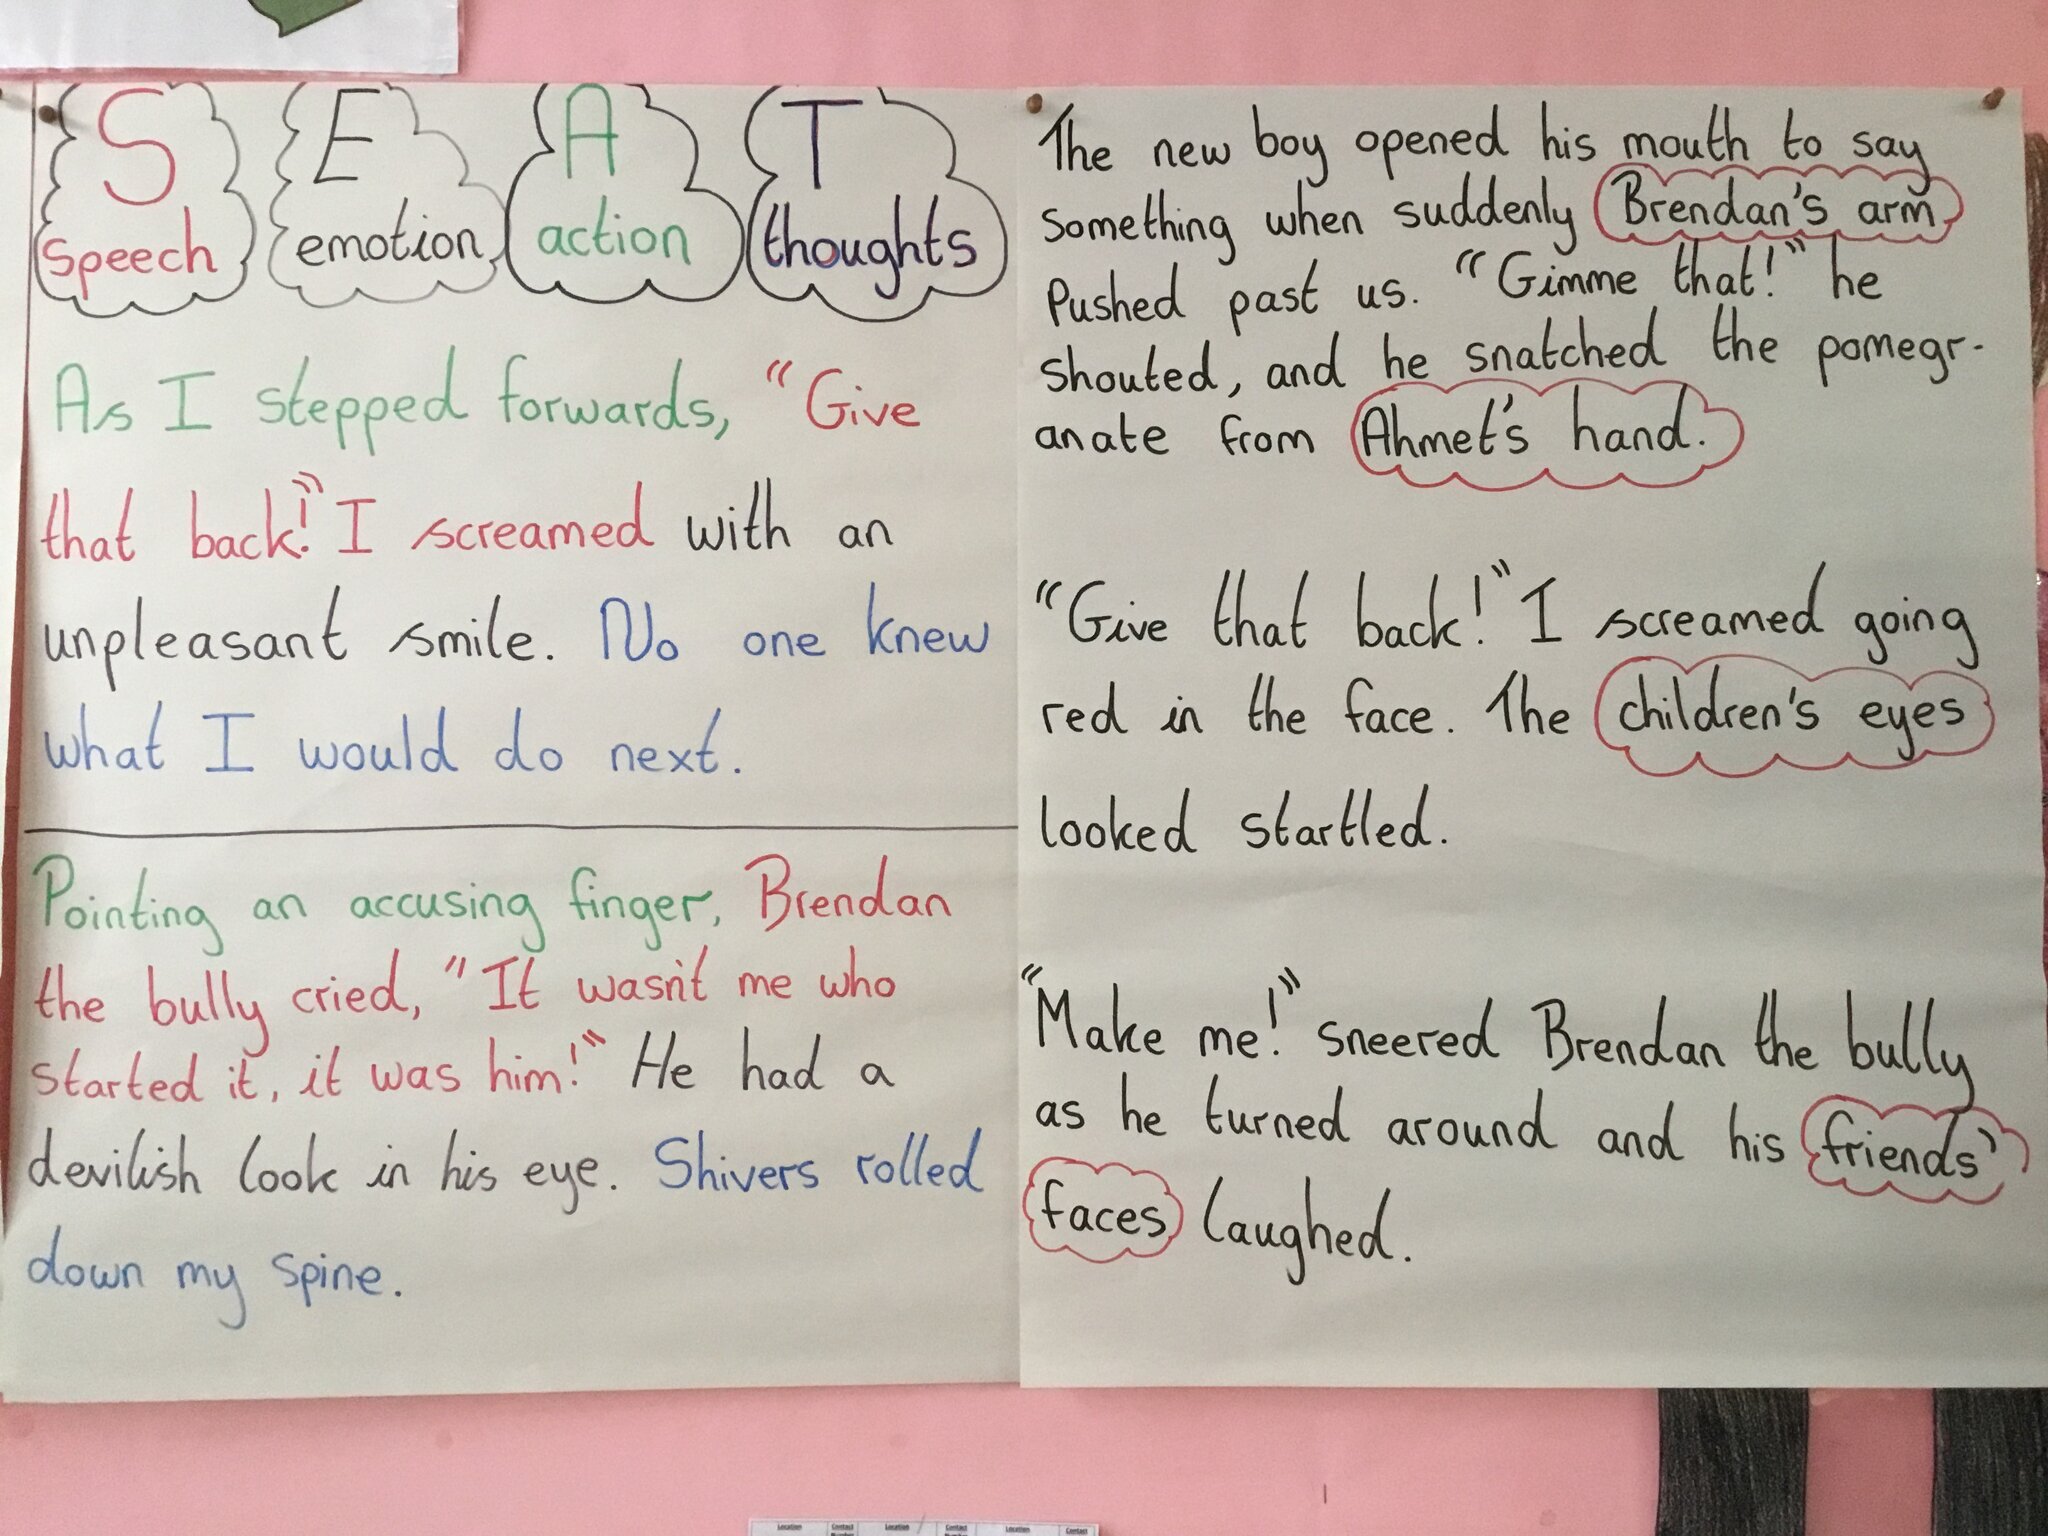 S E A T
speech emotion action thoughts
As I stepped forwards, "Give
that back!" I screamed with an
unpleasant smile. No one knew
what I would do next.
Pointing an accusing finger, Brendan
the bully cried, "It wasn't me who
started it, it was him!" He had a
devilish look in his eye. Shivers rolled
down my spine.
The new boy opened his mouth to say
something when suddenly Brendan's arm
pushed past us. "Gimme that!" he
shouted, and he snatched the pomegr-
anate from Ahmet's hand.
"Give that back!" I screamed going
red in the face. The children's eyes
looked startled.
"Make me!" sneered Brendan the bully
as he turned around and his friends'
faces laughed.
Location Contact Location Contact Location Contact